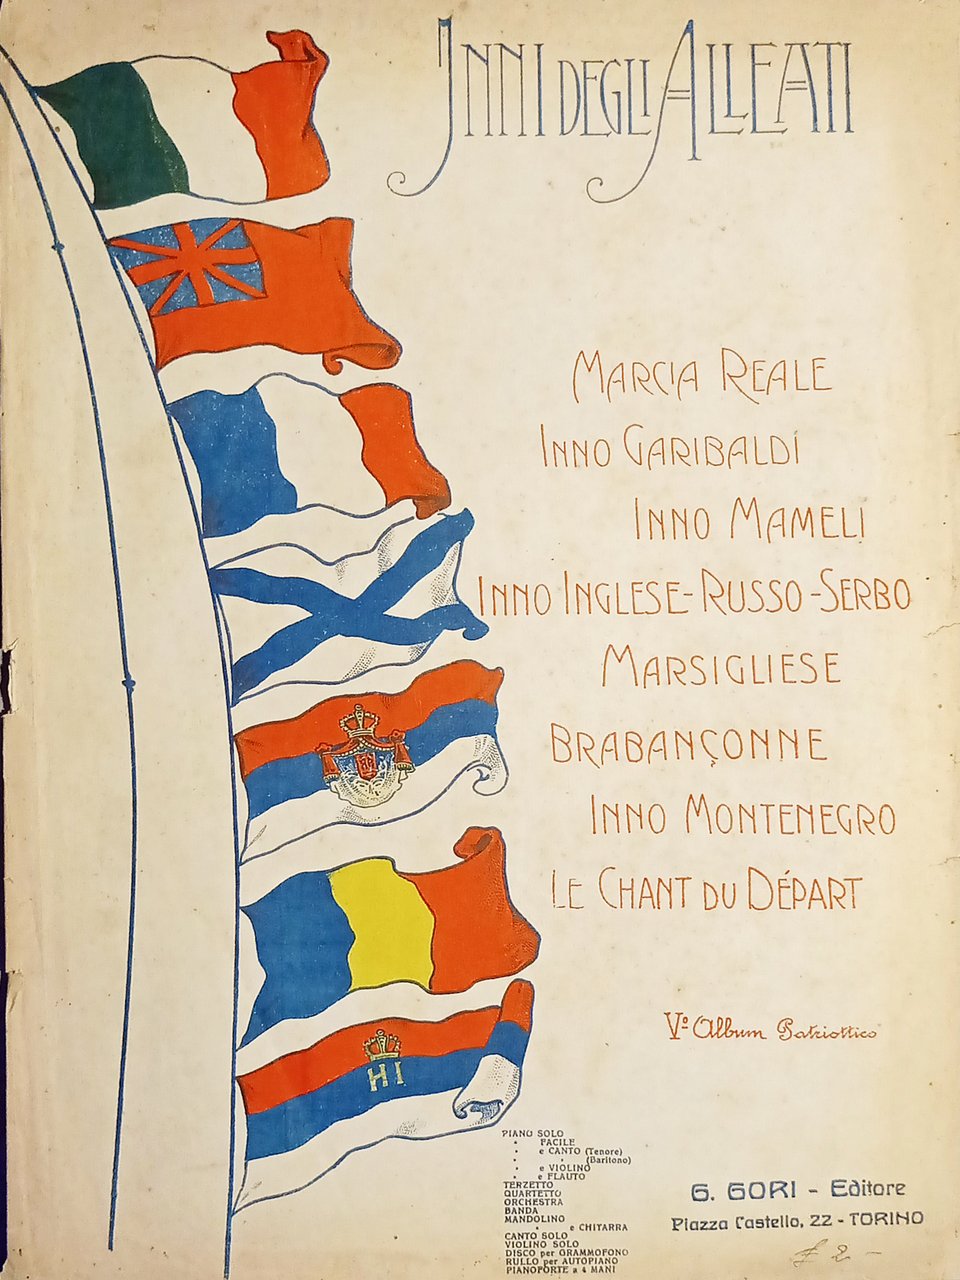 INNI DEGLI ALLEATI
MARCIA REALE
INNO GARIBALDI
INNO MAMELI
INNO INGLESE-RUSSO-SERBO
MARSIGLIESE
BRABANÇONNE
INNO MONTENEGRO
LE CHANT DU DÉPART
V.º Album Patriottico
HI
PIANO SOLO
" FACILE
" e CANTO (Tenore)
" " (Baritono)
" e VIOLINO
" e FLAUTO
TERZETTO
QUARTETTO
ORCHESTRA
BANDA
MANDOLINO
" e CHITARRA
CANTO SOLO
VIOLINO SOLO
DISCO per GRAMMOFONO
RULLO per AUTOPIANO
PIANOFORTE a 4 MANI
G. GORI - Editore
Piazza Castello, 22 - TORINO
£ 2 -